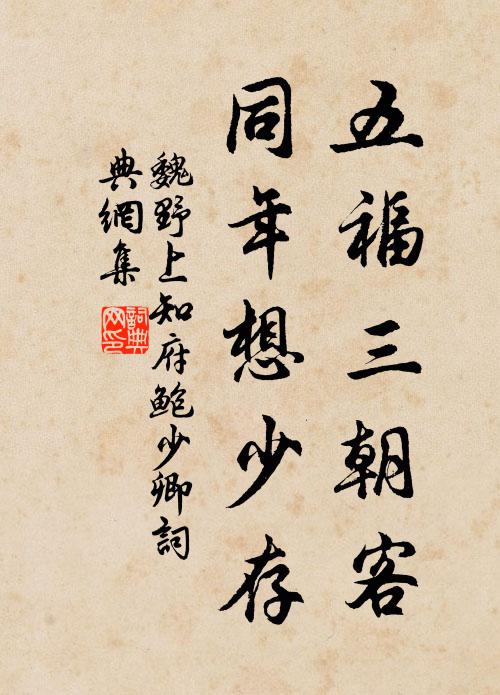 五福三朝客
同年想少存
魏野上知府鮑少卿詞
典網集
詞典網印